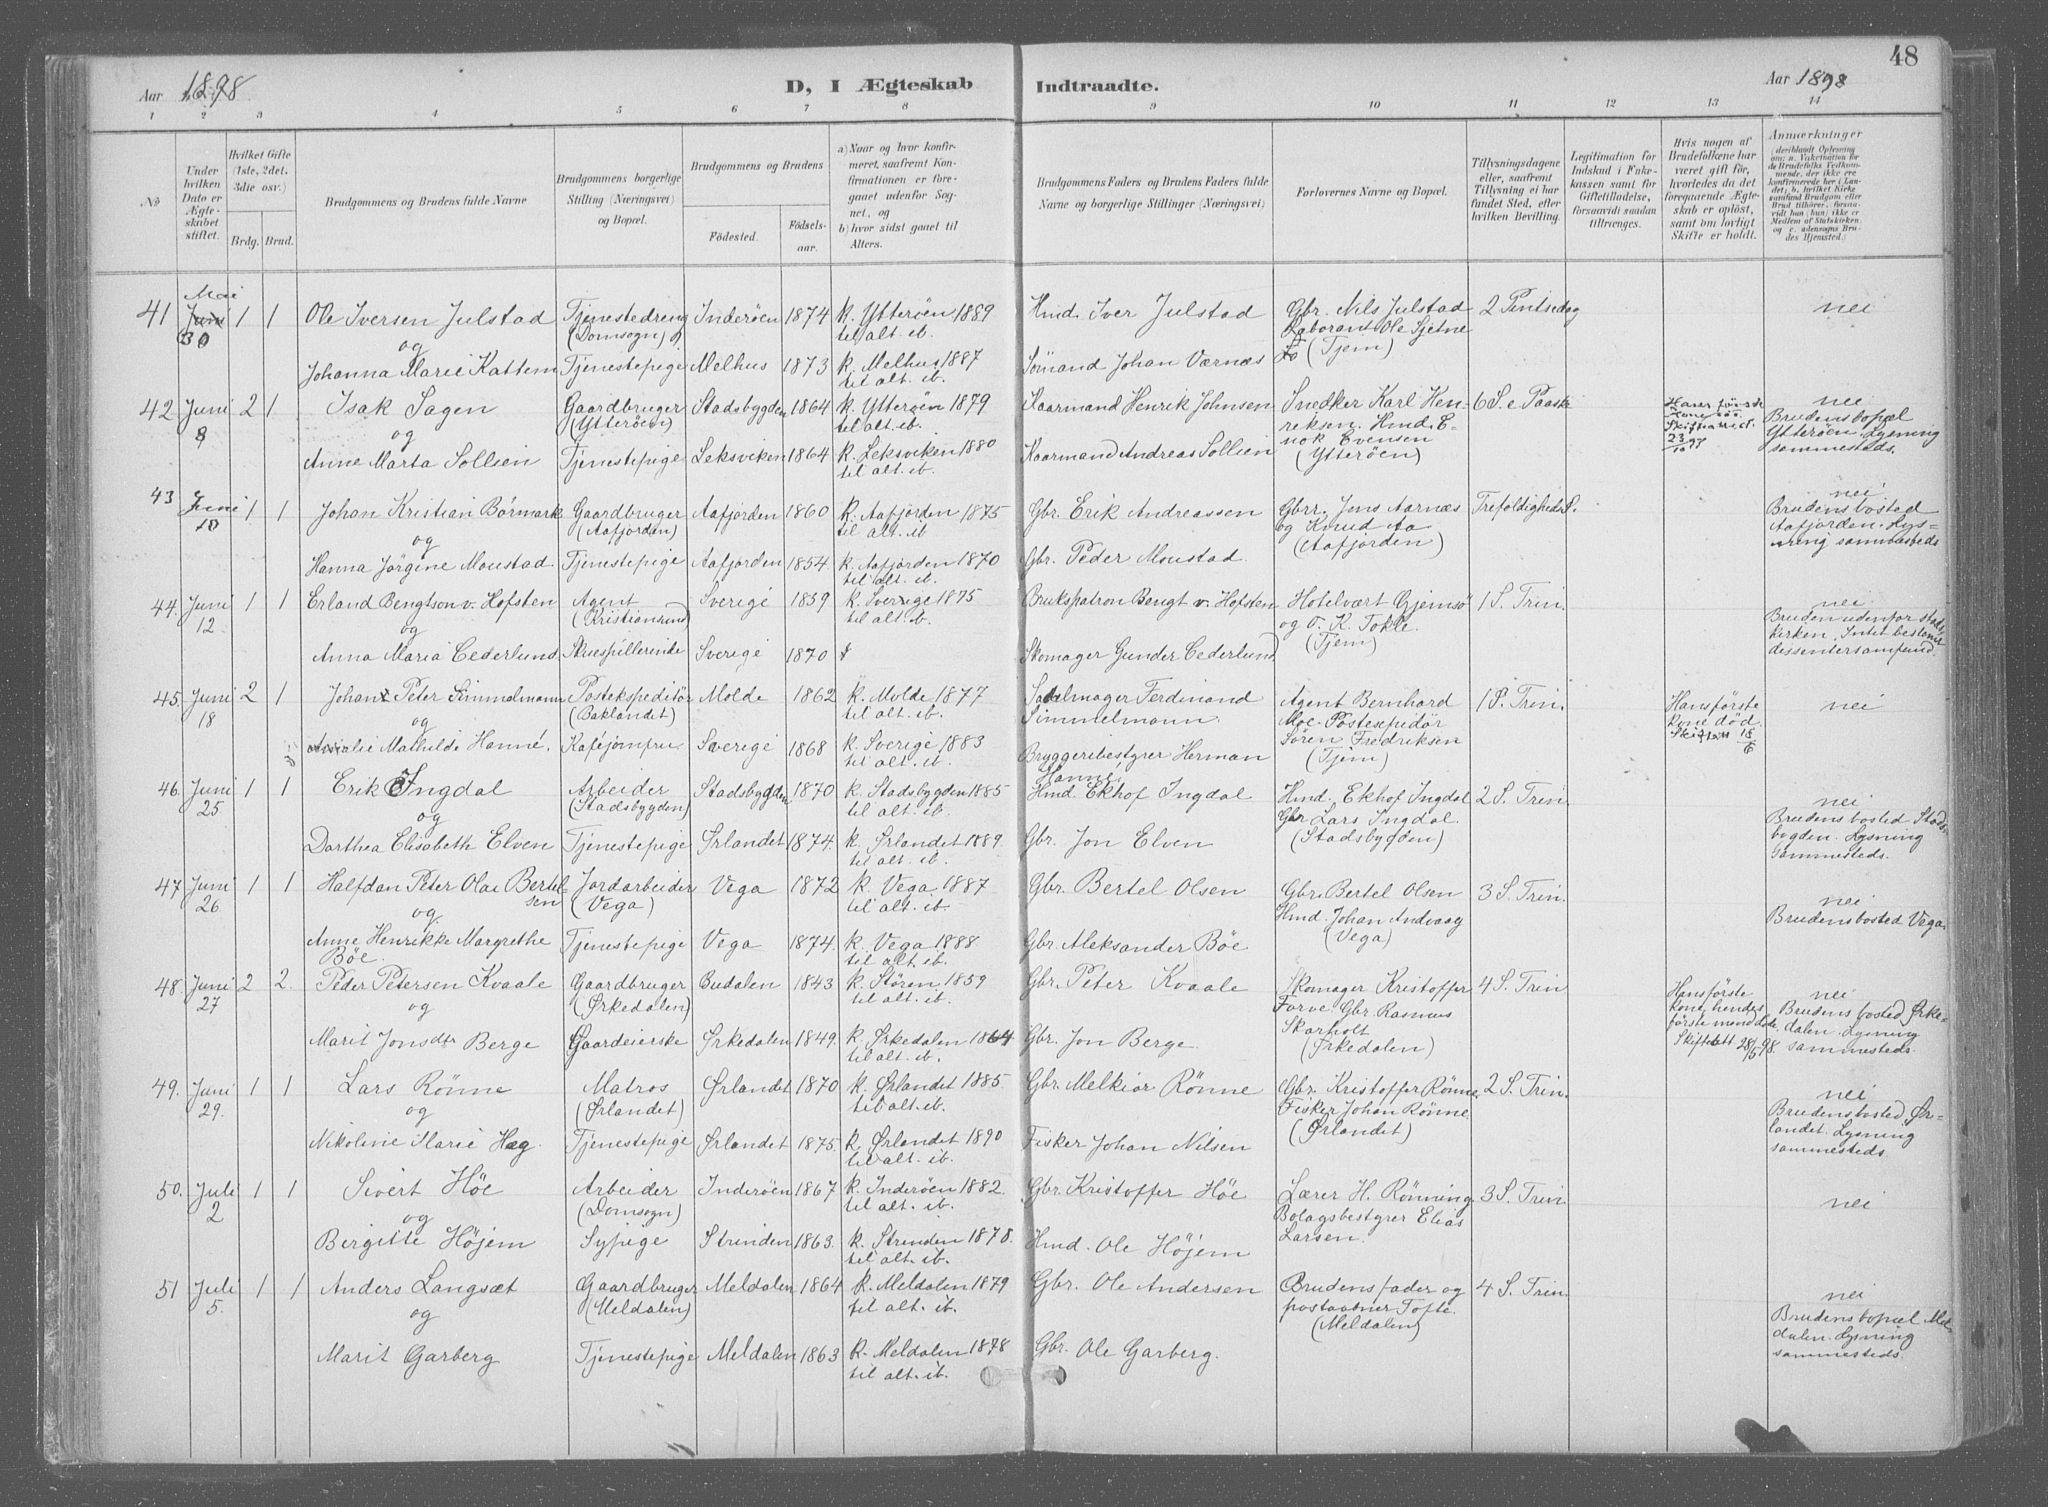 48
Aar 1898 D, I Ægteskab Indtraadte. Aar 1898
1 2 3 4 5 6 7 8 9 10 11 12 13 14
No
Under hvilken Dato er Ægteskabet stiftet.
Hvilket Gifte (1ste, 2det, 3die osv.) Brdg. Brud.
Brudgommens og Brudens fulde Navne
Brudgommens borgerlige Stilling (Næringsvei) og Bopæl.
Brudgommens og Brudens Fødested. Fødselsaar.
a) Naar og hvor konfirmeret, saafremt Konfirmationen er foregaaet udenfor Sognet, og b) hvor sidst gaaet til Alters.
Brudgommens Faders og Brudens Faders fulde Navne og borgerlige Stillinger (Næringsvei)
Forlovernes Navne og Bopæl.
Tillysningsdagene eller, saafremt Tillysning ei har fundet Sted, efter hvilken Bevilling.
Legitimation for Indskud i Enkekassen samt for Giftetilladelse, forsaavidt saadan tiltrænges.
Hvis nogen af Brudefolkene har været gift før, hvorledes da det foregaaende Ægteskab er opløst, samt om lovligt Skifte er holdt.
Anmærkninger
41 Mai 30 1 1 Ole Iversen Julstad Tjenestedreng (Domsogn) Inderøen 1874 k. Ytterøen 1889 til alt. ib. Hmd. Iver Julstad Gbr. Nils Julstad Laborant Ole Sjetne (Tjem) 2 Pintsedag nei
og
Johanna Marie Kattem Tjenestepige Melhus 1873 k. Melhus 1887 til alt. ib. Sömand Johan Værnes
42 Juni 8 2 1 Isak Sagen Gaardbruger (Ytterøen) Stadsbygden 1864 k. Ytterøen 1879 til alt. ib. Kaarmand Henrik Johnsen Snedker Karl Henriksen. Hmd. Enok Evensen (Ytterøen) 6 S. e Paaske 23/10 97 nei Brudens bopæl Ytterøen. Lysning sammesteds.
og
Anne Marta Sollien Tjenestepige Leksviken 1864 k. Leksviken 1880 til alt. ib. Kaarmand Andreas Sollien
43 Juni 10 1 1 Johan Kristian Börmark Gaardbruger (Aafjorden) Aafjorden 1860 k. Aafjorden 1875 til alt. ib Gbr. Erik Andreassen Gbrr. Jens Aarnæs og Knud Aa (Aafjorden) Trefoldigheds S. nei Brudens bosted Aafjorden. Lysning sammesteds
og
Hanna Jörgine Moustad Tjenestepige Aafjorden 1854. k. Aafjorden 1870 til alt. ib. Gbr. Peder Moustad.
44. Juni 12 1 1 Erland Bengtson v. Hofsten Agent (Kristiansund) Sverige 1859 k. Sverige 1875 til alt. ib. Brukspatron Bengt v. Hofsten Hotelvært Gjemsö og O. K. Tokle. (Tjem) 1 S. Trin. nei Bruden udenfor stats kirken. Intet bestemt dissentersamfund.
og
Anna Maria Cederlund Skuespillerinde Sverige 1870 Skomager Gunder Cederlund
45. Juni 18 2 1 Johan Peter Simmelmann Postekspeditör (Baklandet) Molde 1862 k. Molde 1877 til alt. ib. Sadelmager Ferdinand Simmelmann. Agent Bernhard Moe. Postexpidör Sören Fredriksen (Tjem) 1 S. Trin. Hans förste kone död. nei
og
Amalie Mathilde Hanné. Kaféjomfru Sverige 1868 k. Sverige 1883 til alt. ib. Bryggeribestyrer Herman Hanné
46. Juni 25 1 1 Erik Ingdal Arbeider (Stadsbygden) Stadsbygden 1870 k. Stadsbygden 1885 til alt. ib. Hmd. Ekhof Ingdal Hmd. Ekhof Ingdal Gbr Lars Ingdal. (Stadsbygden) 2 S. Trin. nei Brudens bosted Stadsbygden. Lysning sammesteds.
og
Dorthea Elisabeth Elven Tjenestepige Ørlandet 1874. k. Ørlandet 1889. til alt. ib. Gbr. Jon Elven
47 Juni 26. 1 1 Halfdan Peter Olai Bertelsen Jordarbeider (Vega) Vega 1872 k. Vega. 1887 til alt. ib. Gbr. Bertel Olsen Gbr. Bertel Olsen Hmd. Johan Andvaag (Vega) 3 S. Trin. nei Brudens bosted Vega.
og
Anne Henrikke Margrethe Böe. Tjenestepige Vega 1874. k. Vega 1888 til alt. ib. Gbr. Aleksander Böe
48. Juni 27 2 2. Peder Petersen Kvaale Gaardbruger (Ørkedalen) Budalen 1843 k. Stören 1859 til alt. ib. Gbr. Peter Kvaale Skomager Kristoffer Forve. Gbr. Rasmus Skarholt (Ørkedalen) 4 S. Trin Hans förste kone, hendes förste mand döde. Skiftett 28/5 98. nei Brudens bosted Ørkedalen. Lysning sammesteds.
og
Marit Jonsdtr Berge Gaardeierske Ørkedalen 1849. k. Ørkedalen 1864 til alt. ib. Gbr. Jon Berge
49. Juni 29. 1 1 Lars Rönne Matros (Ørlandet) Ørlandet 1870 k. Ørlandet 1885. til alt. ib. Gbr. Melkior Rönne Gbr. Kristoffer Rönne, Fisker Johan Rönne. (Ørlandet) 2 S. Trin. nei Brudens bosted Ørlandet. Lysning sammesteds.
og
Nikoline Marie Hæg. Tjenestepige Ørlandet 1875. k. Ørlandet 1890 til alt. ib. Fisker Johan Nilsen
50. Juli 2 1 1 Sivert Höe Arbeider (Domsogn) Inderöen 1867 k. Inderöen 1882. til alt. ib. Gbr. Kristoffer Höe Lærer H. Rönning Bolagsbestyrer Elias Larsen. 3 S. Trin. nei
og
Birgitte Höjem Sypige Strinden 1863. k. Strinden 1878. til alt. ib. Hmd. Ole Höjem
51 Juli 5. 1 1 Anders Langsæt Gaardbruger (Meldalen) Meldalen 1864 k. Meldalen 1879 til alt. ib. Gbr. Ole Andersen Brudens fader og postaabner Tofte. (Meldalen) 4 S. Trin. nei Brudens bopæl Meldalen. Lysning sammesteds.
og
Marit Garberg Tjenestepige Meldalen 1863 k. Meldalen 1878 til alt. ib. Gbr. Ole Garberg.